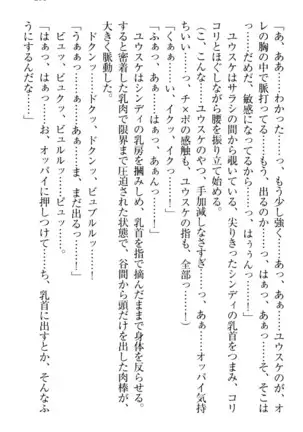 「あ、ああ、わかった……っ、もう少し強く…あっ、オ
レの胸の中で脈打ってる……もう、出るのか……っ、あ
……っ、だめだ、敏感になってるから……っ、はぅぅんっ」
ユウスケはサラシの間から覗いている、尖りきったシンディの乳首をつまみ、コリ
コリとほぐしながら腰を振り立て始める。
（こ、こんな……ユウスケのやつ、手加減しなさすぎ……っ、あぁ……オッパイ気持
ちいい……っ、チ×ポの感触も、ユウスケの指も、全部……っ）
「くぁぁ……っ、イク、イクッ……！」
「ふあっ、あぁぁっ……！」
ユウスケはシンディの乳房を掴み、乳首を指で摘んだままで身体を反らせる。
すると密着した乳肉で限界まで圧迫された状態で、谷間から頭だけを出した肉棒が、
大きく脈動した。
ドクンッ……ドクンッ、ビュブルルッ……！
「うぁぁっ……あ、ぁぁ……ま、まだ出るっ……！」
ビュッ、ビュクッ、ビュルルッ……ビュッ……。
「はぁっ、はぁ……っ、お、オッパイに押しつけて……ち、乳首に出すとか、そんなふ
うにするんだな……」